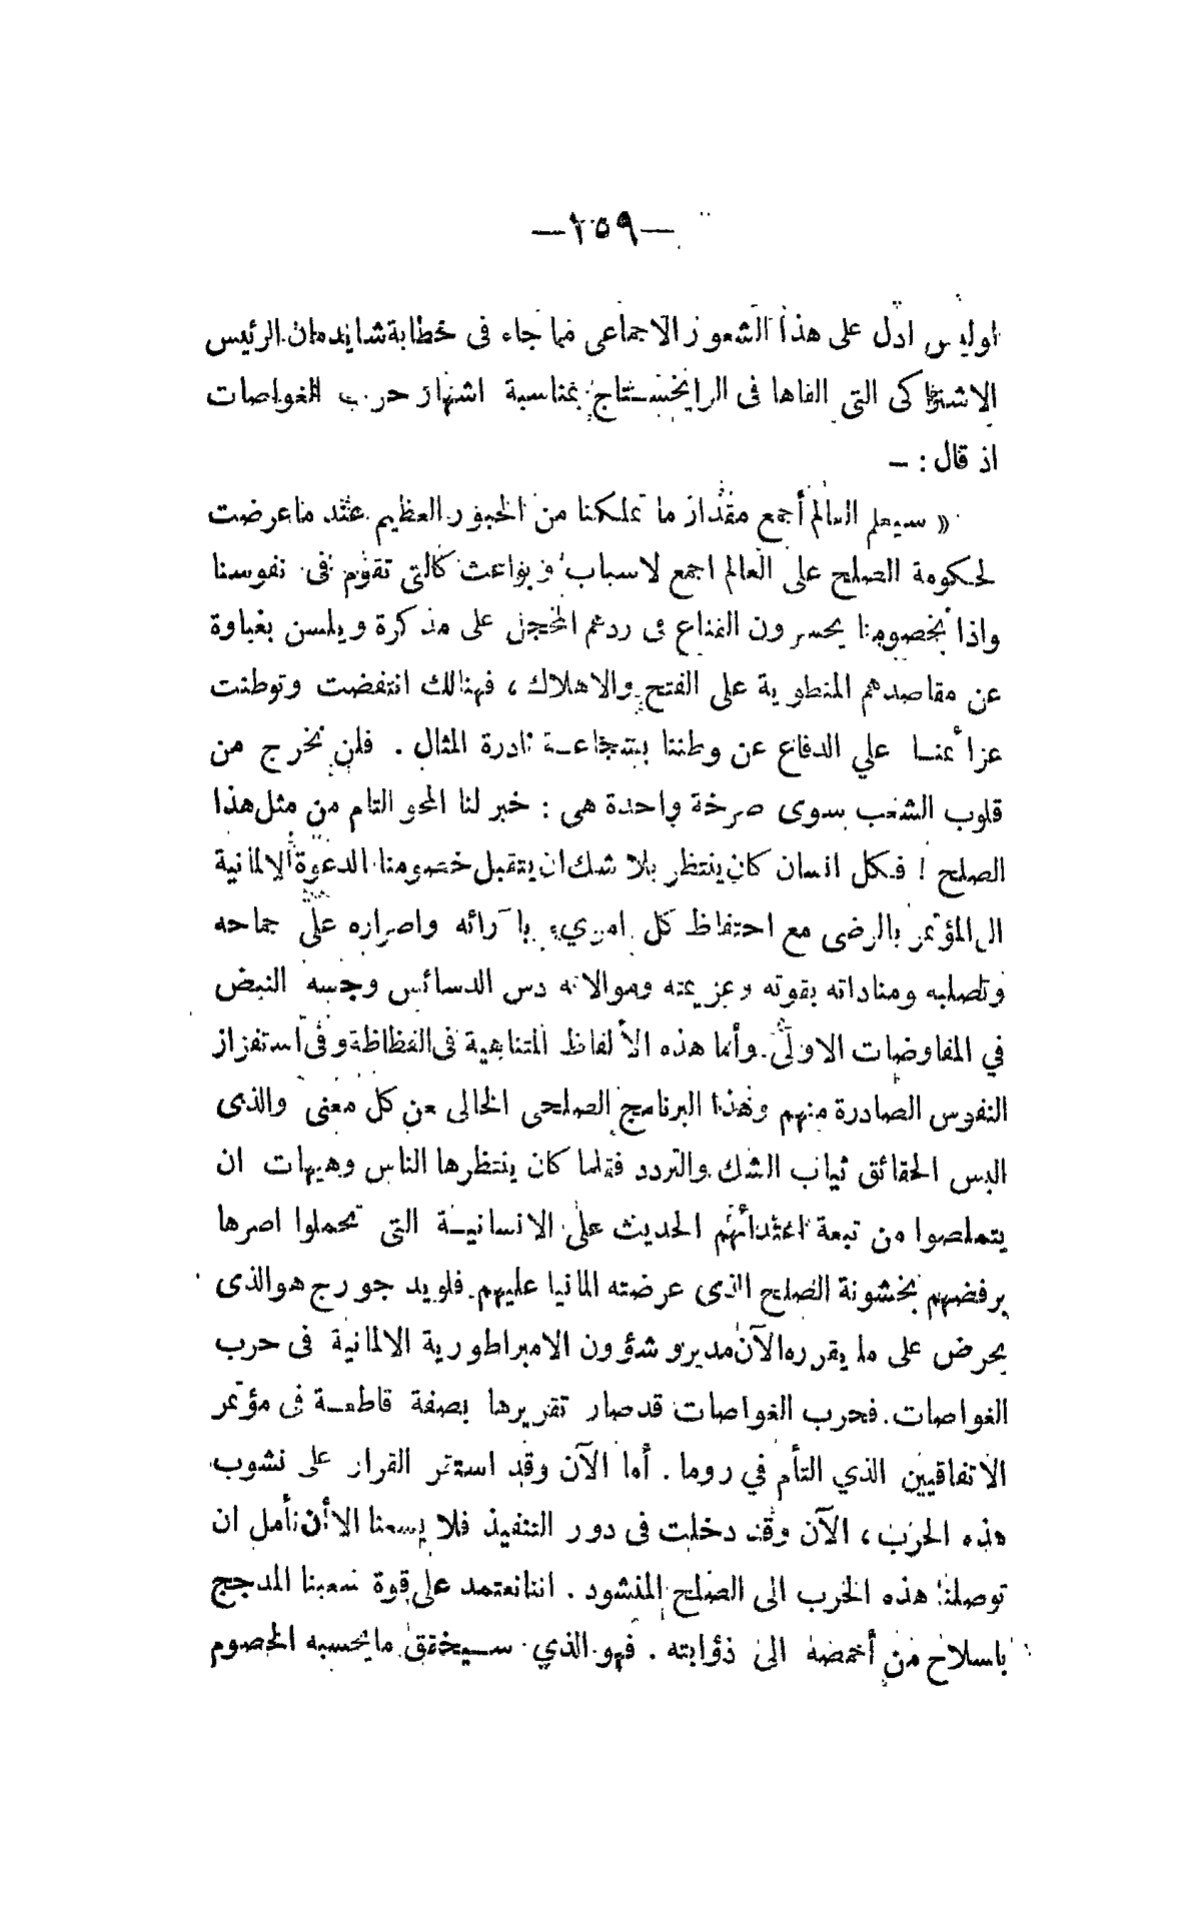 —٢٥٩—
اوليس ادل على هذا الشعور الاجماعى مما جاء فى خطابة شايندمان الرئيس
الاشتراكى التى القاها فى الرايخستاج بمناسبة اشهار حرب الغواصات
اذ قال : —
« سيعلم العالم أجمع مقدار ما تملكنا من الحبور العظيم عند ما عرضت
لحكومة الصلح على العالم اجمع لاسباب و بواعث كالتى تقوم فى نفوسنا
واذا بخصومنا يحسرون القناع فى ردهم المخجل على مذكرة ويلسن بغباوة
عن مقاصدهم المنطوية على الفتح والاهلاك ، فهنالك انتفضت وتوطنت
عزائمنا علي الدفاع عن وطننا بشجاعة نادرة المثال . فلن نخرج من
قلوب الشعب سوى صرخة واحدة هى : خبر لنا المحو التام من مثل هذا
الصلح ! فكل انسان كان ينتظر بلا شك ان يتقبل خصومنا الدعوة الالمانية
الى المؤتمر بالرضى مع احتفاظ كل امريء بآرائه واصراره على جماحه
وتصلبه ومناداته بقوته وعزيمته وموالاته دس الدسائس وجسه النبض
في المفاوضات الاولى . وأما هذه الألفاظ المتناهية فى الفظاظة وفى استفزاز
النفوس الصادرة منهم وهذا البرنامج الصلحى الخالى عن كل معنى والذى
البس الحقائق ثياب الشك والتردد فقلما كان ينتظرها الناس وهيهات ان
يتملصوا من تبعة اعتدائهم الحديث على الانسانية التى تحملوا اصرها
برفضهم بخشونة الصلح الذى عرضته المانيا عليهم . فلويد جورج هو الذى
يحرض على ما يقرره الآن مديرو شؤون الامبراطورية الالمانية فى حرب
الغواصات . فحرب الغواصات قد صار تقريرها بصفة قاطعة فى مؤتمر
الاتفاقيين الذي التأم في روما . أما الآن وقد استقر القرار على نشوب
هذه الحرب ، الآن وقد دخلت فى دور التنفيذ فلا يسعنا الا أن نأمل ان
توصلنا هذه الحرب الى الصلح المنشود . اننا نعتمد على قوة شعبنا المدجج
باسلاح من أخمصه الى ذؤابته . فهو الذي سيخفق ما يحسبه الخصوم